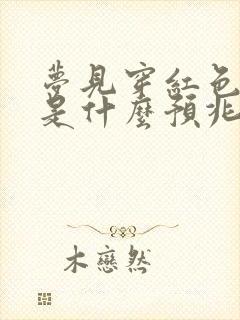 夢見穿紅色
是什麼預兆
木戀然